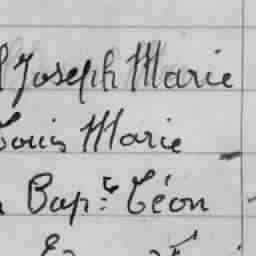 Joseph Marie
Louis Marie
Bap:te Léon